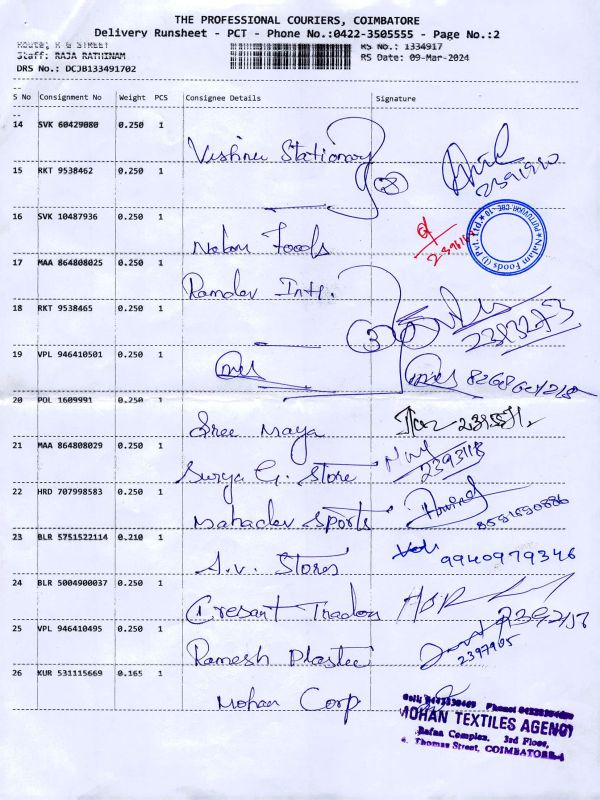 THE PROFESSIONAL COURIERS, COIMBATORE
Delivery Runsheet - PCT - Phone No.:0422-3505555 - Page No.:2
Route: R G STREET
RS No.: 1334917
Staff: RAJA RATHINAM
RS Date: 09-Mar-2024
DRS No.: DCJB133491702
S No Consignment No Weight PCS Consignee Details Signature
14 SVK 60429080 0.250 1 Vishnu Stationary
15 RKT 9538462 0.250 1
2391910
16 SVK 10487936 0.250 1 Nalam Foods
Nalam Foods (I) Pvt. Ltd.
17 MAA 864808025 0.250 1 Ramdev Intl.
18 RKT 9538465 0.250 1
2383273
19 VPL 946410501 0.250 1
20 POL 1609991 0.250 1 Sree Maya
21 MAA 864808029 0.250 1 Surya G. Store 2393118
22 HRD 707998583 0.250 1 Mahadev Sports
23 BLR 5751522114 0.210 1 A.V. Stores 9940979346
24 BLR 5004900037 0.250 1 Cresant Tradon
25 VPL 946410495 0.250 1 Ramesh Plastic 2397905
26 KUR 531115669 0.165 1 Mohan Corp
MOHAN TEXTILES AGENCY
Rafna Complex. 3rd Floor,
Thomas Street, COIMBATORE-1